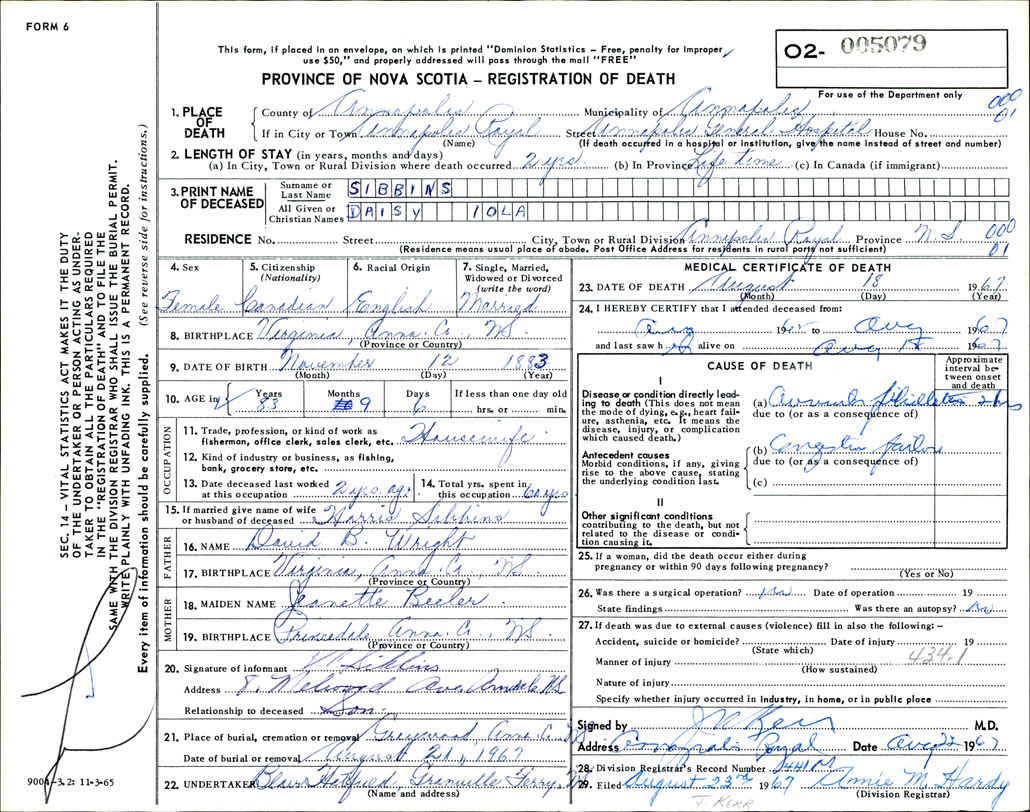 FORM 6
This form, if placed in an envelope, on which is printed "Dominion Statistics – Free, penalty for improper
use $50," and properly addressed will pass through the mail "FREE"
PROVINCE OF NOVA SCOTIA – REGISTRATION OF DEATH
O2- 005079
For use of the Department only
000
01
1. PLACE OF DEATH
County of Annapolis Municipality of Annapolis
If in City or Town Annapolis Royal Street Annapolis General Hospital House No.
(Name) (If death occurred in a hospital or institution, give the name instead of street and number)
2. LENGTH OF STAY (in years, months and days)
(a) In City, Town or Rural Division where death occurred 2 yrs (b) In Province Life time (c) In Canada (if immigrant)
3. PRINT NAME OF DECEASED
Surname or Last Name SIBBINS
All Given or Christian Names DAISY IOLA
RESIDENCE No. Street City, Town or Rural Division Annapolis Royal Province N.S. 000
(Residence means usual place of abode. Post Office Address for residents in rural parts not sufficient) 01
4. Sex Female
5. Citizenship (Nationality) Canadian
6. Racial Origin English
7. Single, Married, Widowed or Divorced (write the word) Married
8. BIRTHPLACE Virginia, Anna. Co., N.S.
(Province or Country)
9. DATE OF BIRTH November 12 1883
(Month) (Day) (Year)
10. AGE in Years 83 Months 9 Days 6 If less than one day old hrs. or min.
OCCUPATION
11. Trade, profession, or kind of work as fisherman, office clerk, sales clerk, etc. Housewife
12. Kind of industry or business, as fishing, bank, grocery store, etc.
13. Date deceased last worked at this occupation 2 yrs. ago
14. Total yrs. spent in this occupation 60 yrs
15. If married give name of wife or husband of deceased Harris Sibbins
FATHER
16. NAME David B. Wright
17. BIRTHPLACE Virginia, Anna. Co., N.S.
(Province or Country)
MOTHER
18. MAIDEN NAME Jeanette Beeler
19. BIRTHPLACE Princedale, Anna. Co., N.S.
(Province or Country)
20. Signature of informant Sibbins
Address 8 Melwood Ave. Armdale N.S
Relationship to deceased Son
21. Place of burial, cremation or removal Greywood Anna. Co. N.S.
Date of burial or removal August 21, 1967
22. UNDERTAKER Blair Hatfield Granville Ferry, N.S.
(Name and address)
MEDICAL CERTIFICATE OF DEATH
23. DATE OF DEATH August 18 1967
(Month) (Day) (Year)
24. I HEREBY CERTIFY that I attended deceased from:
Aug 1965 to Aug 1967
and last saw her alive on Aug 18 1967
CAUSE OF DEATH
Approximate interval between onset and death
I
Disease or condition directly leading to death (This does not mean the mode of dying, e.g., heart failure, asthenia, etc. It means the disease, injury, or complication which caused death.)
(a) Auricular fibrillation 2 hrs
due to (or as a consequence of)
Antecedent causes
Morbid conditions, if any, giving rise to the above cause, stating the underlying condition last.
(b) Congestive failure
due to (or as a consequence of)
(c)
II
Other significant conditions contributing to the death, but not related to the disease or condition causing it.
25. If a woman, did the death occur either during
pregnancy or within 90 days following pregnancy?
(Yes or No)
26. Was there a surgical operation? no Date of operation 19
State findings Was there an autopsy? no
27. If death was due to external causes (violence) fill in also the following: –
Accident, suicide or homicide? Date of injury 19
(State which) 434.1
Manner of injury
(How sustained)
Nature of injury
Specify whether injury occurred in industry, in home, or in public place
Signed by J W Kerr M.D.
Address Annapolis Royal Date Aug 22 1967
28. Division Registrar's Record Number 3441M
29. Filed August 23rd 1967 Annie M. Hardy
(Division Registrar)
J. KERR
SEC. 14 – VITAL STATISTICS ACT MAKES IT THE DUTY
OF THE UNDERTAKER OR PERSON ACTING AS UNDER-
TAKER TO OBTAIN ALL THE PARTICULARS REQUIRED
IN THE "REGISTRATION OF DEATH" AND TO FILE THE
SAME WITH THE DIVISION REGISTRAR WHO SHALL ISSUE THE BURIAL PERMIT.
WRITE PLAINLY WITH UNFADING INK. THIS IS A PERMANENT RECORD.
Every item of information should be carefully supplied. (See reverse side for instructions.)
900 -3.2: 11-3-65